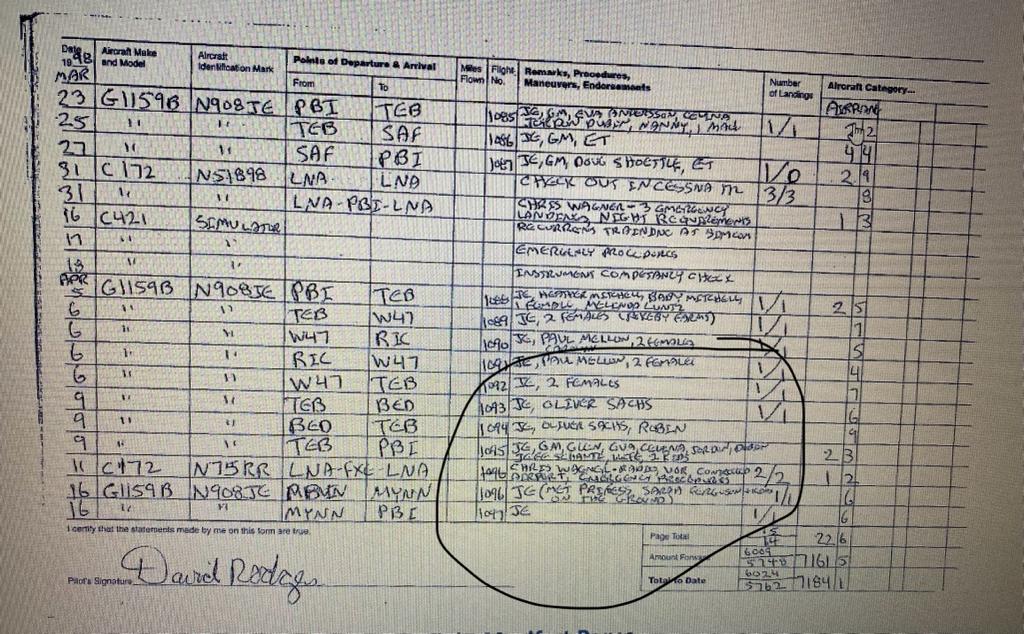 Date 1998 Aircraft Make and Model Aircraft Identification Mark Points of Departure & Arrival From To Miles Flown Flight No. Remarks, Procedures, Maneuvers, Endorsements Number of Landings Aircraft Category...
MAR
23 G1159B N908JE PBI TEB 1085 JE, GM, EVA ANDERSSON, CELINA, NANNY, 1 MALE 1/1
25 " " TEB SAF 1086 JE, GM, ET 4 4
27 " " SAF PBI 1087 JE, GM, DOUG SHOETTLE, ET 1/0 2 9
31 C172 N51898 LNA LNA CHECK OUT IN CESSNA 172 3/3 8
31 " " LNA-PBI-LNA CHRIS WAGNER - 3 EMERGENCY LANDINGS NIGHT REQUIREMENTS 1 3
16 C421 SIMULATOR RECURRENT TRAINING AT SIMCOM
17 " " EMERGENCY PROCEDURES
18 " " INSTRUMENT COMPETANCY CHECK
APR
5 G1159B N908JE PBI TEB 1088 JE, HEATHER MITCHELL, BABY MITCHELL, 1 FEMALE, MELINDA LUNTZ 1/1 2 5
6 " " TEB W47 1089 JE, 2 FEMALES 1/1 7
6 " " W47 RIC 1090 JE, PAUL MELLON, 2 FEMALES 1/1 5
6 " " RIC W47 1091 JE, PAUL MELLON, 2 FEMALES 1/1 4
6 " " W47 TEB 1092 JE, 2 FEMALES 1/1 7
9 " " TEB BED 1093 JE, OLIVER SACHS 1/1 6
9 " " BED TEB 1094 JE, OLIVER SACHS, ROBIN 9
9 " " TEB PBI 1095 JE, GM, GLEN, EVA, CELINA, WIFE, 2 KIDS 2 3
11 C172 N75RR LNA-FXE-LNA 1096 CHRIS WAGNER-RADIO, VOR, CONTROLLED AIRPORT, EMERGENCY PROCEDURES 2/2 1 2
16 G1159B N908JE MYNN 1096 JE (MET PRINCESS SARAH FERGUSON + KIDS ON THE GROUND) 1/1 6
16 " " MYNN PBI 1097 JE 1/1 6
I certify that the statements made by me on this form are true.
Page Total 15 14 22 6
Amount Forward 6009 5748 7161 5
Total to Date 6024 5762 7184 1
Pilot's Signature David Rodgers